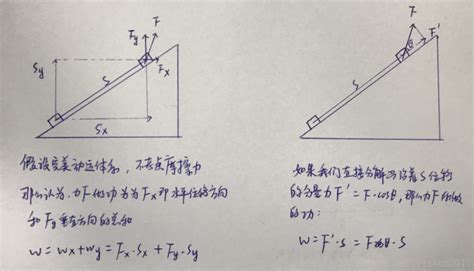 F
Fy
Fx
Sy
S
Sx
假设完美动运体系，不考虑摩擦力
那么认为，力F做功为为Fx那水平位移方向
和Fy垂直方向的总和
W = Wx + Wy = Fx·Sx + Fy·Sy
F
F'
θ
S
如果我们直接分解出沿着S位移
的分量力F' = F·cosθ，那么力F所做
的功：
W = F'·S = Fcosθ·S